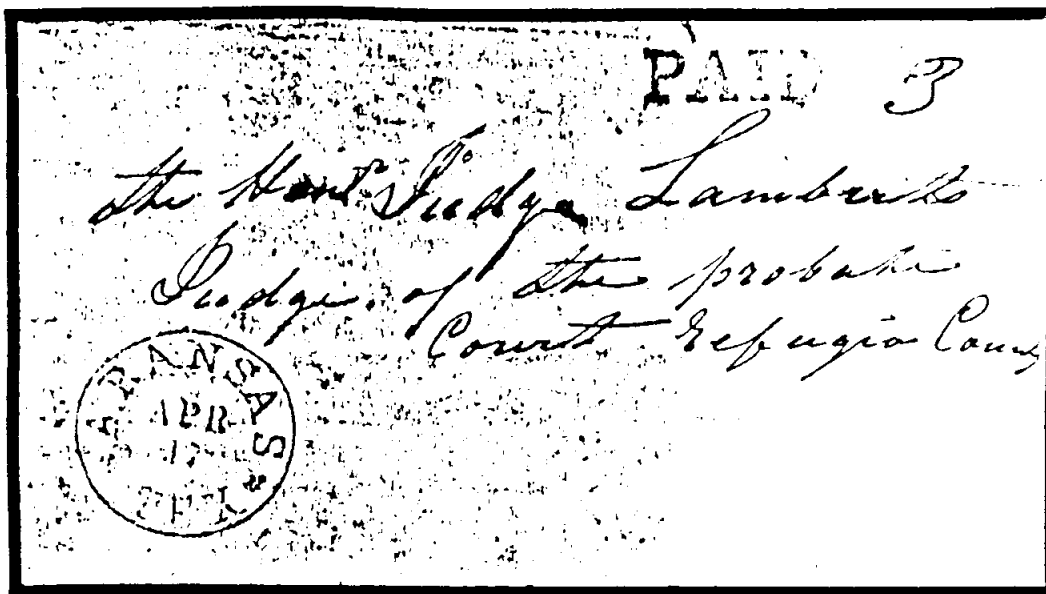 PAID 3
the Honl Judge Lamberts
Judge of the probate
Court Refugio County
ARANSAS
APR
17
TEX